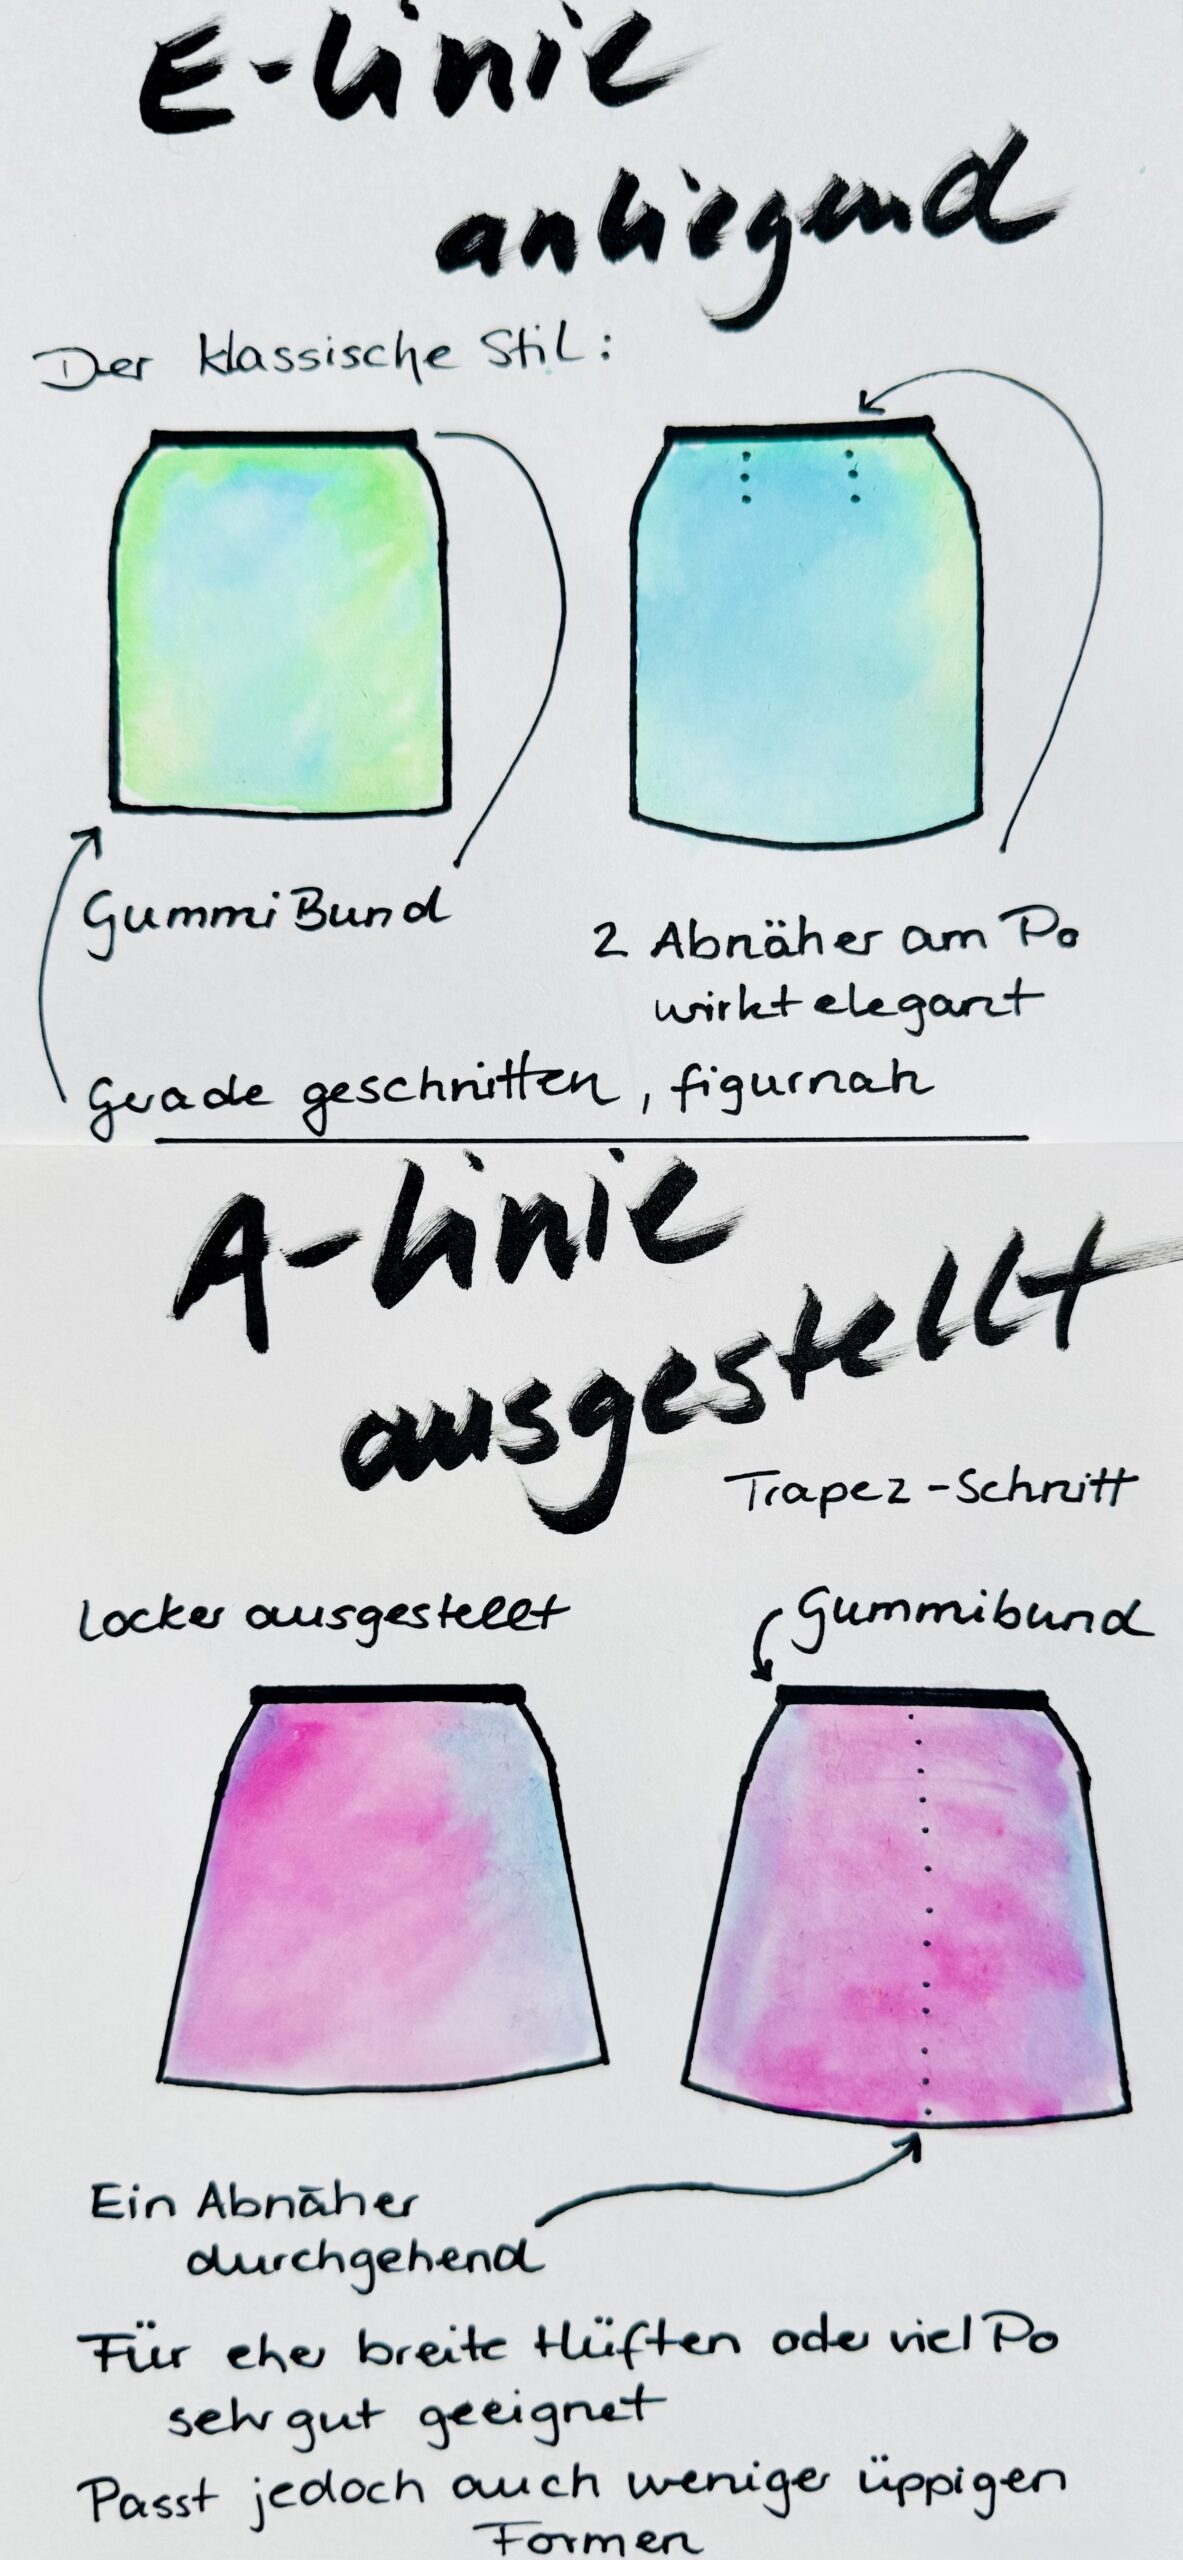 E-Linie
anliegend
Der klassische Stil:
GummiBund
2 Abnäher am Po
wirkt elegant
Gerade geschnitten, figurnah
A-Linie
ausgestellt
Trapez-Schnitt
Locker ausgestellt
Gummibund
Ein Abnäher
durchgehend
Für eher breite Hüften oder viel Po
sehr gut geeignet
Passt jedoch auch weniger üppigen
Formen